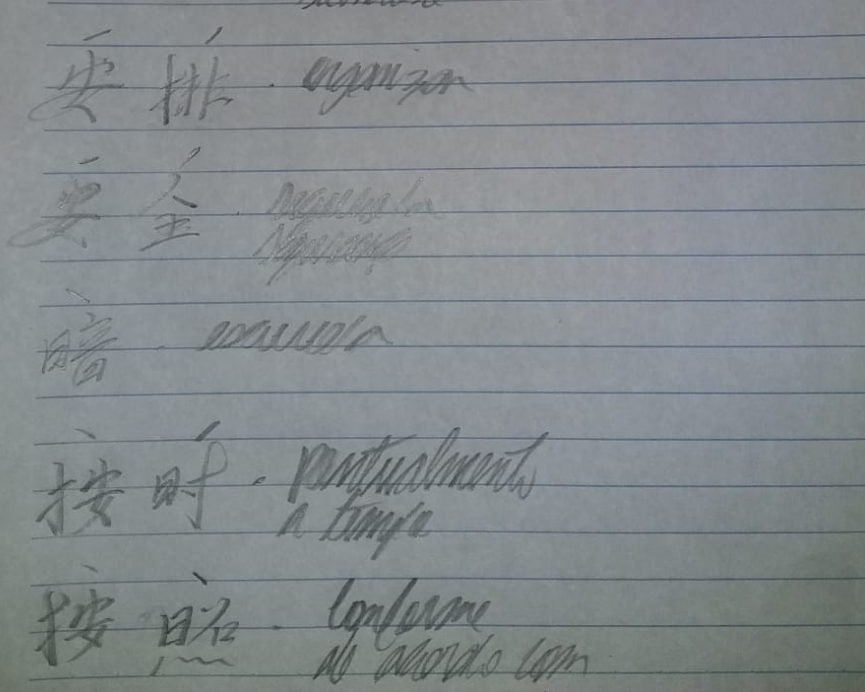 安排 · organizar
安全 · segurança
暗 · escuro
按时 · pontualmente
a tempo
按照 · conforme
de acordo com